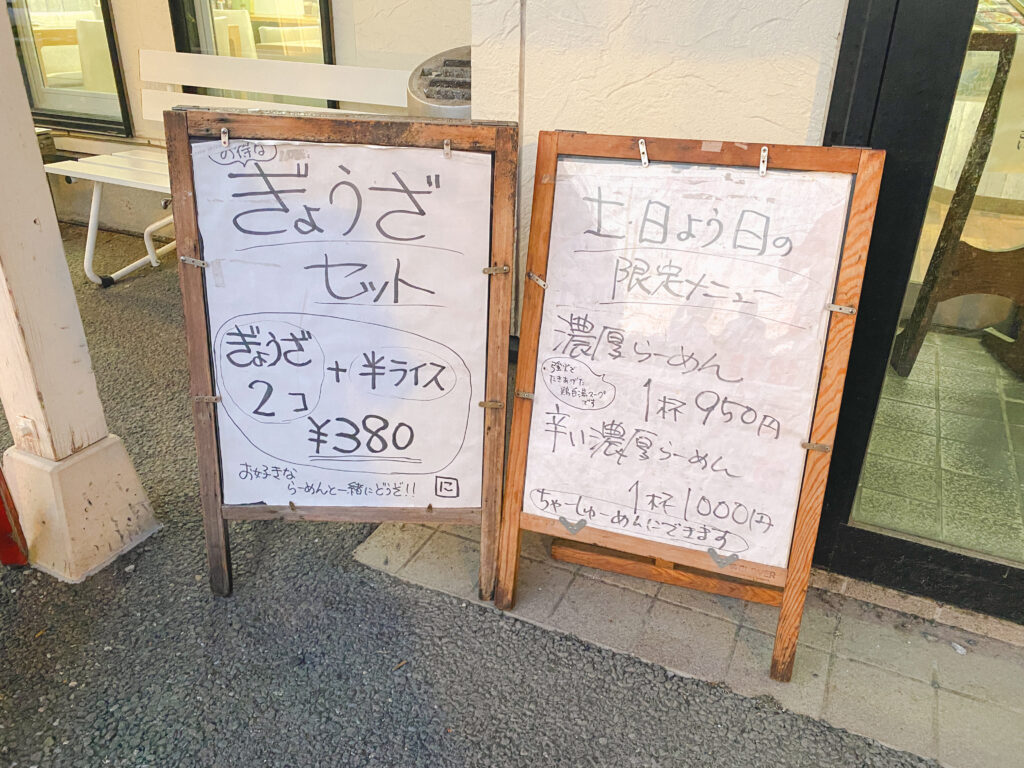 お得な
ぎょうざ
セット
ぎょうざ + 半ライス
2コ
¥380
お好きな
らーめんと一緒にどうぞ!! に
土・日よう日の
限定メニュー
濃厚らーめん
・強火で
たきあげた
鶏白湯スープ
です
1杯 950円
辛い濃厚らーめん
1杯 1000円
ちゃーしゅーめんにできます